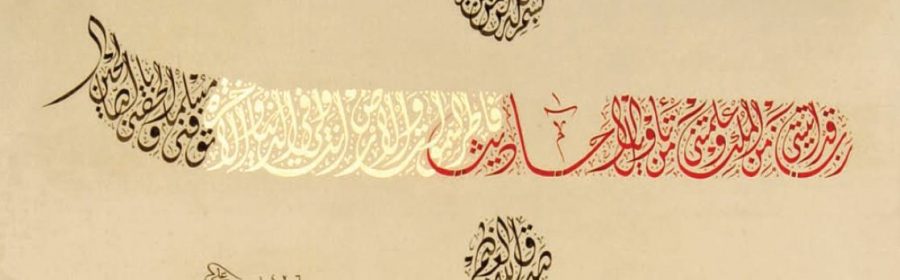 بسم الله الرحمن الرحيم
رب قد آتيتني من الملك وعلمتني من تأويل الأحاديث فاطر السماوات والأرض أنت وليي في الدنيا والآخرة توفني مسلما وألحقني بالصالحين
صدق الله العظيم